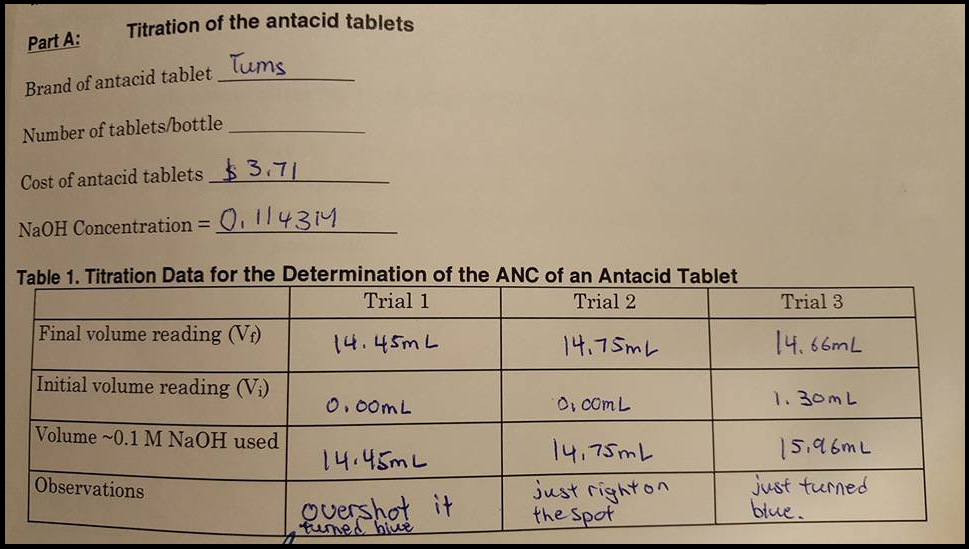 Part A: Titration of the antacid tablets
Brand of antacid tablet Tums
Number of tablets/bottle
Cost of antacid tablets $3.71
NaOH Concentration = 0.1143M
Table 1. Titration Data for the Determination of the ANC of an Antacid Tablet
Trial 1 Trial 2 Trial 3
Final volume reading (Vf) 14.45mL 14.75mL 14.66mL
Initial volume reading (Vi) 0.00mL 0.00mL 1.30mL
Volume ~0.1 M NaOH used 14.45mL 14.75mL 15.96mL
Observations overshot it just right on just turned
turned blue the spot blue.